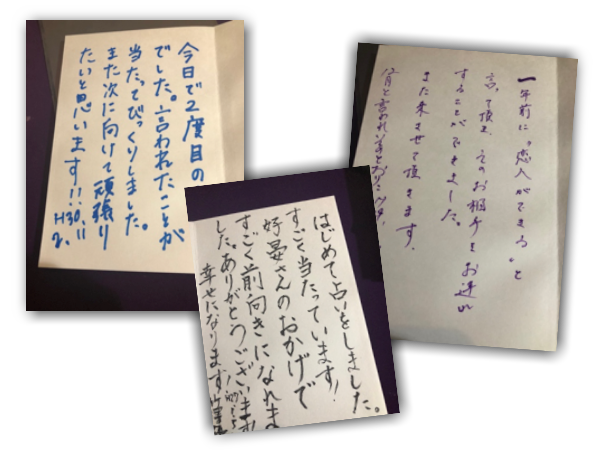 今日で2度目の
でした。言われたことが
当たってびっくりしました。
また次に向けて頑張り
たいと思います!!
H30.11
2.
はじめて占いをしました。
すごく当たっています!
好晏さんのおかげで
すごく前向きになれま
した。ありがとうございます
幸せになります
一年前に"恋人ができる"と
言って頂き、そのお相手をお連れ
することができました。
また来させて頂きます.
12月と言われ